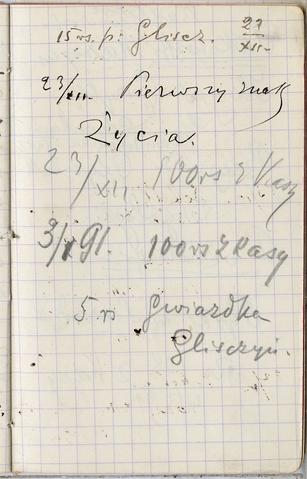 15 rs. p. Gliscz. 21/XII.
23/XII. Pierwszy znak
Życia.
23/XII 100 rs z Kasy
3/I 91. 100 rs z Kasy
5 rs Gwiazdka
Gliszczyń.